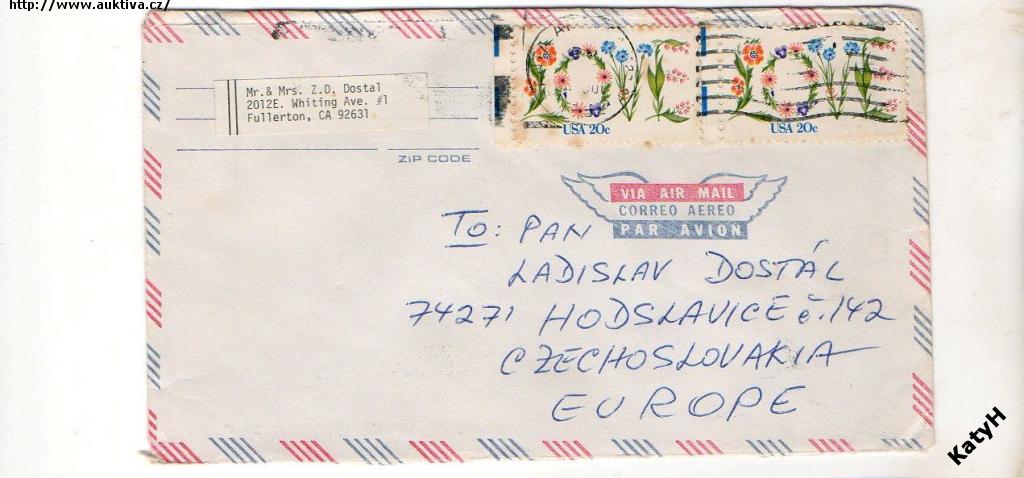 http://www.auktiva.cz/
Mr.& Mrs. Z.D. Dostal
2012E. Whiting Ave. #1
Fullerton, CA 92631
ZIP CODE
LOVE
USA 20c
LOVE
USA 20c
VIA AIR MAIL
CORREO AEREO
PAR AVION
To: PAN
LADISLAV DOSTÁL
74271 HODSLAVICE č.142
CZECHOSLOVAKIA
EUROPE
KatyH